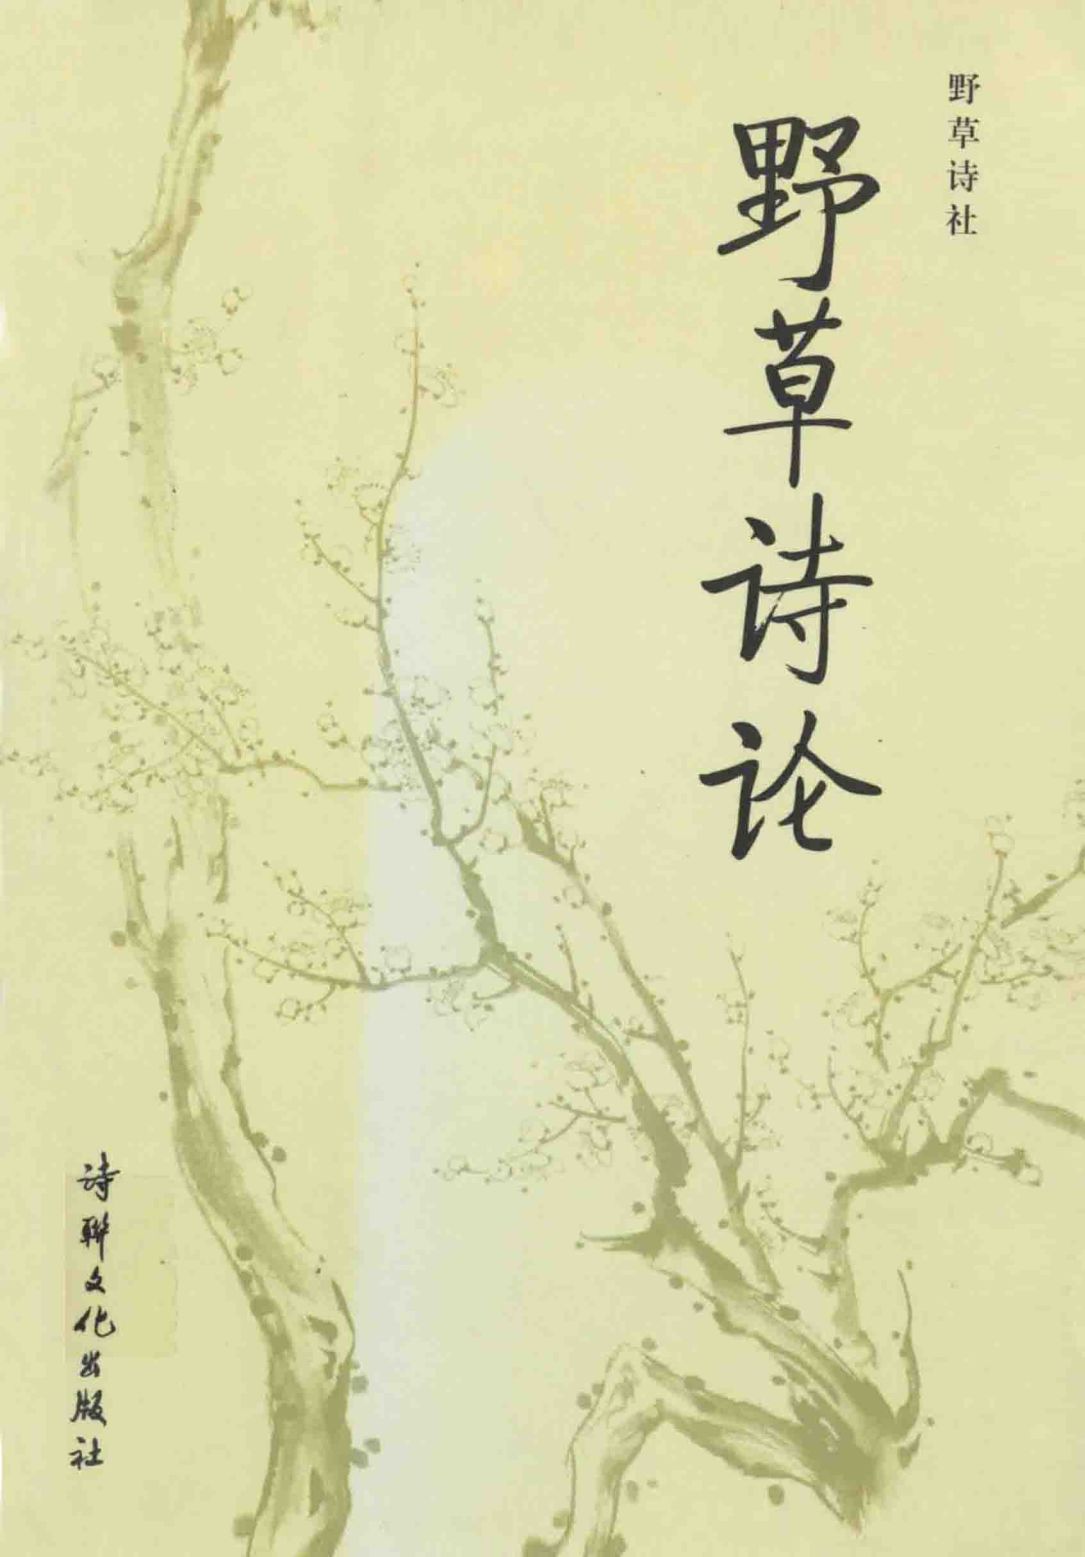 野草诗社
野草诗论
诗聯文化出版社